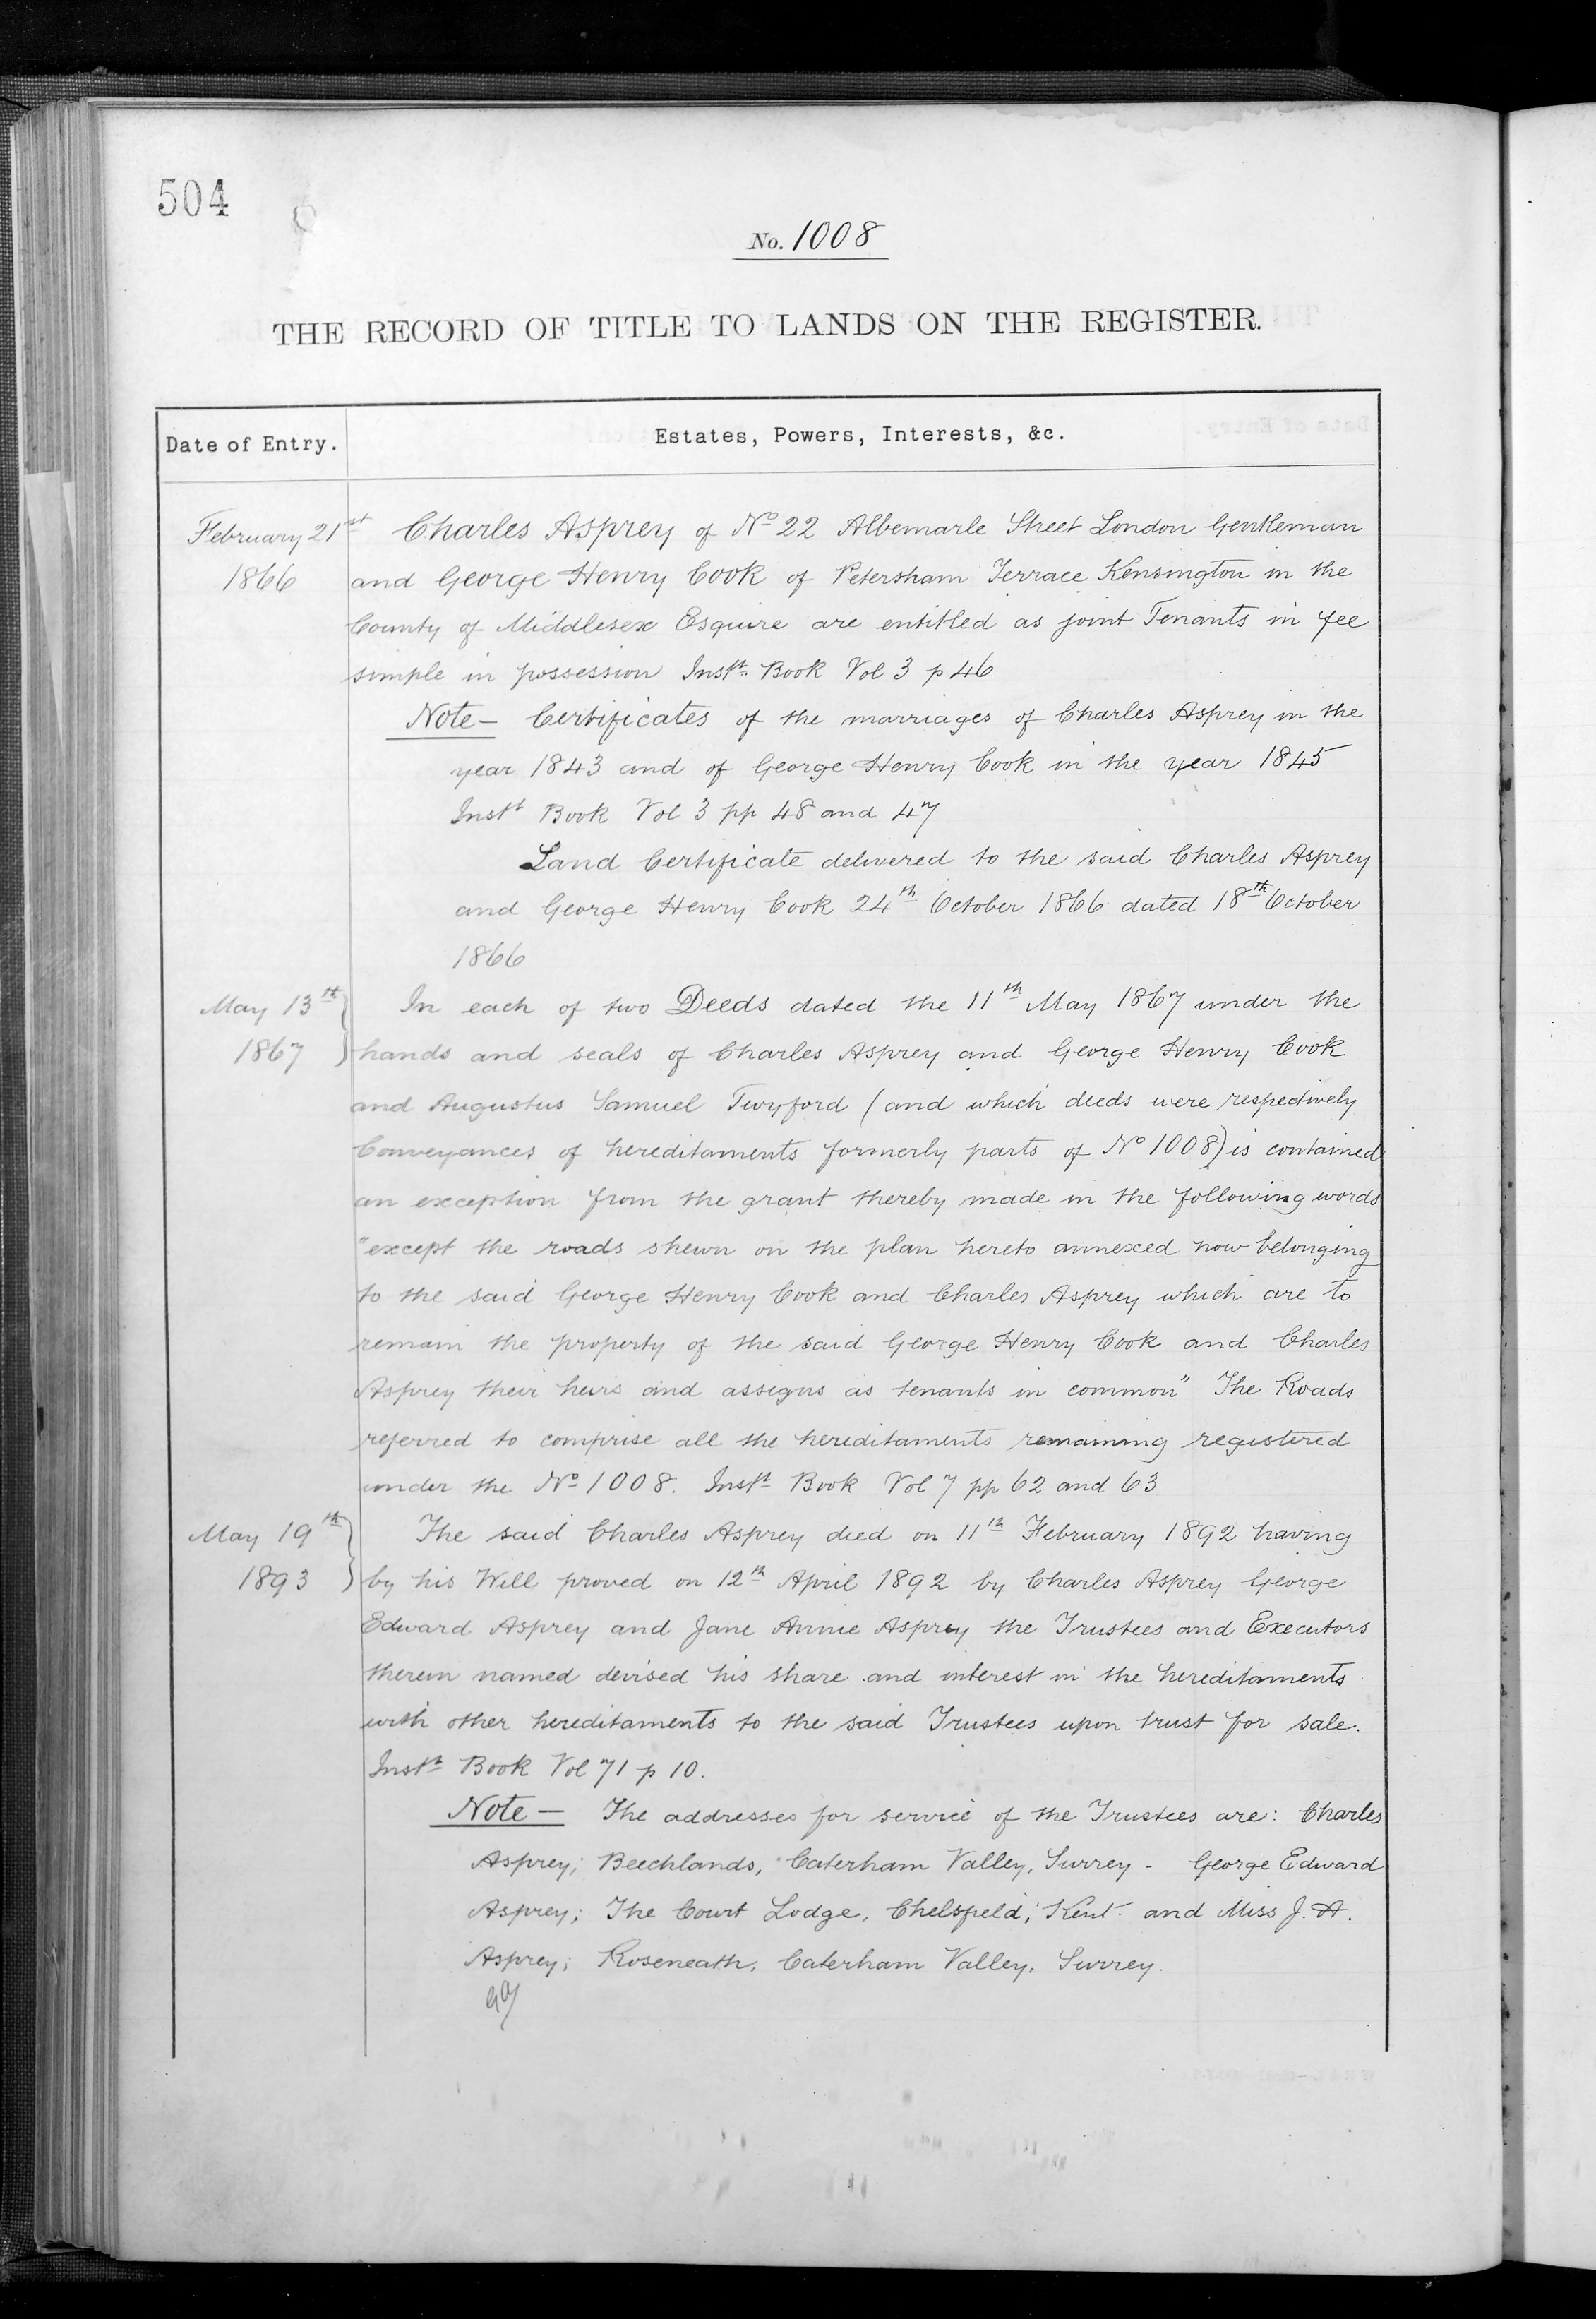 504
No. 1008
THE RECORD OF TITLE TO LANDS ON THE REGISTER.
Date of Entry.
Estates, Powers, Interests, &c.
February 21st
1866
Charles Asprey of No 22 Albemarle Street London Gentleman
and George Henry Cook of Petersham Terrace Kensington in the
County of Middlesex Esquire are entitled as joint Tenants in fee
simple in possession Instt. Book Vol 3 p 46
Note— Certificates of the marriages of Charles Asprey in the
year 1843 and of George Henry Cook in the year 1845
Instt Book Vol 3 pp 48 and 47
Land Certificate delivered to the said Charles Asprey
and George Henry Cook 24th October 1866 dated 18th October
1866
May 13th
1867
In each of two Deeds dated the 11th May 1867 under the
hands and seals of Charles Asprey and George Henry Cook
and Augustus Samuel Twyford (and which deeds were respectively
Conveyances of hereditaments formerly parts of No 1008) is contained
an exception from the grant thereby made in the following words
"except the roads shewn on the plan hereto annexed now belonging
to the said George Henry Cook and Charles Asprey which are to
remain the property of the said George Henry Cook and Charles
Asprey their heirs and assigns as tenants in common" The Roads
referred to comprise all the hereditaments remaining registered
under the No 1008. Instt Book Vol 7 pp 62 and 63
May 19th
1893
The said Charles Asprey died on 11th February 1892 having
by his Will proved on 12th April 1892 by Charles Asprey George
Edward Asprey and Jane Annie Asprey the Trustees and Executors
therein named devised his share and interest in the hereditaments
with other hereditaments to the said Trustees upon trust for sale.
Instt Book Vol 71 p 10.
Note— The addresses for service of the Trustees are: Charles
Asprey; Beechlands, Caterham Valley, Surrey - George Edward
Asprey; The Court Lodge, Chelsfield, Kent. and Miss J. A.
Asprey; Roseneath, Caterham Valley, Surrey.